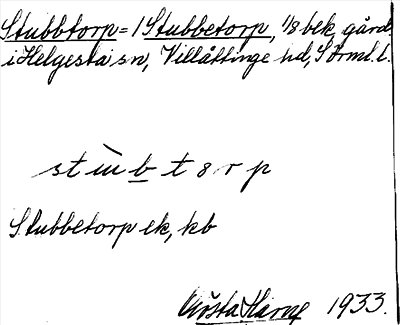 Stubbtorp = 1 Stubbetorp, 1/8 bek. gård
i Helgesta sn, Villåttinge hd, Sörml. l.
st ù b t o r p
Stubbetorp ek, kb
Gösta Harne 1933.